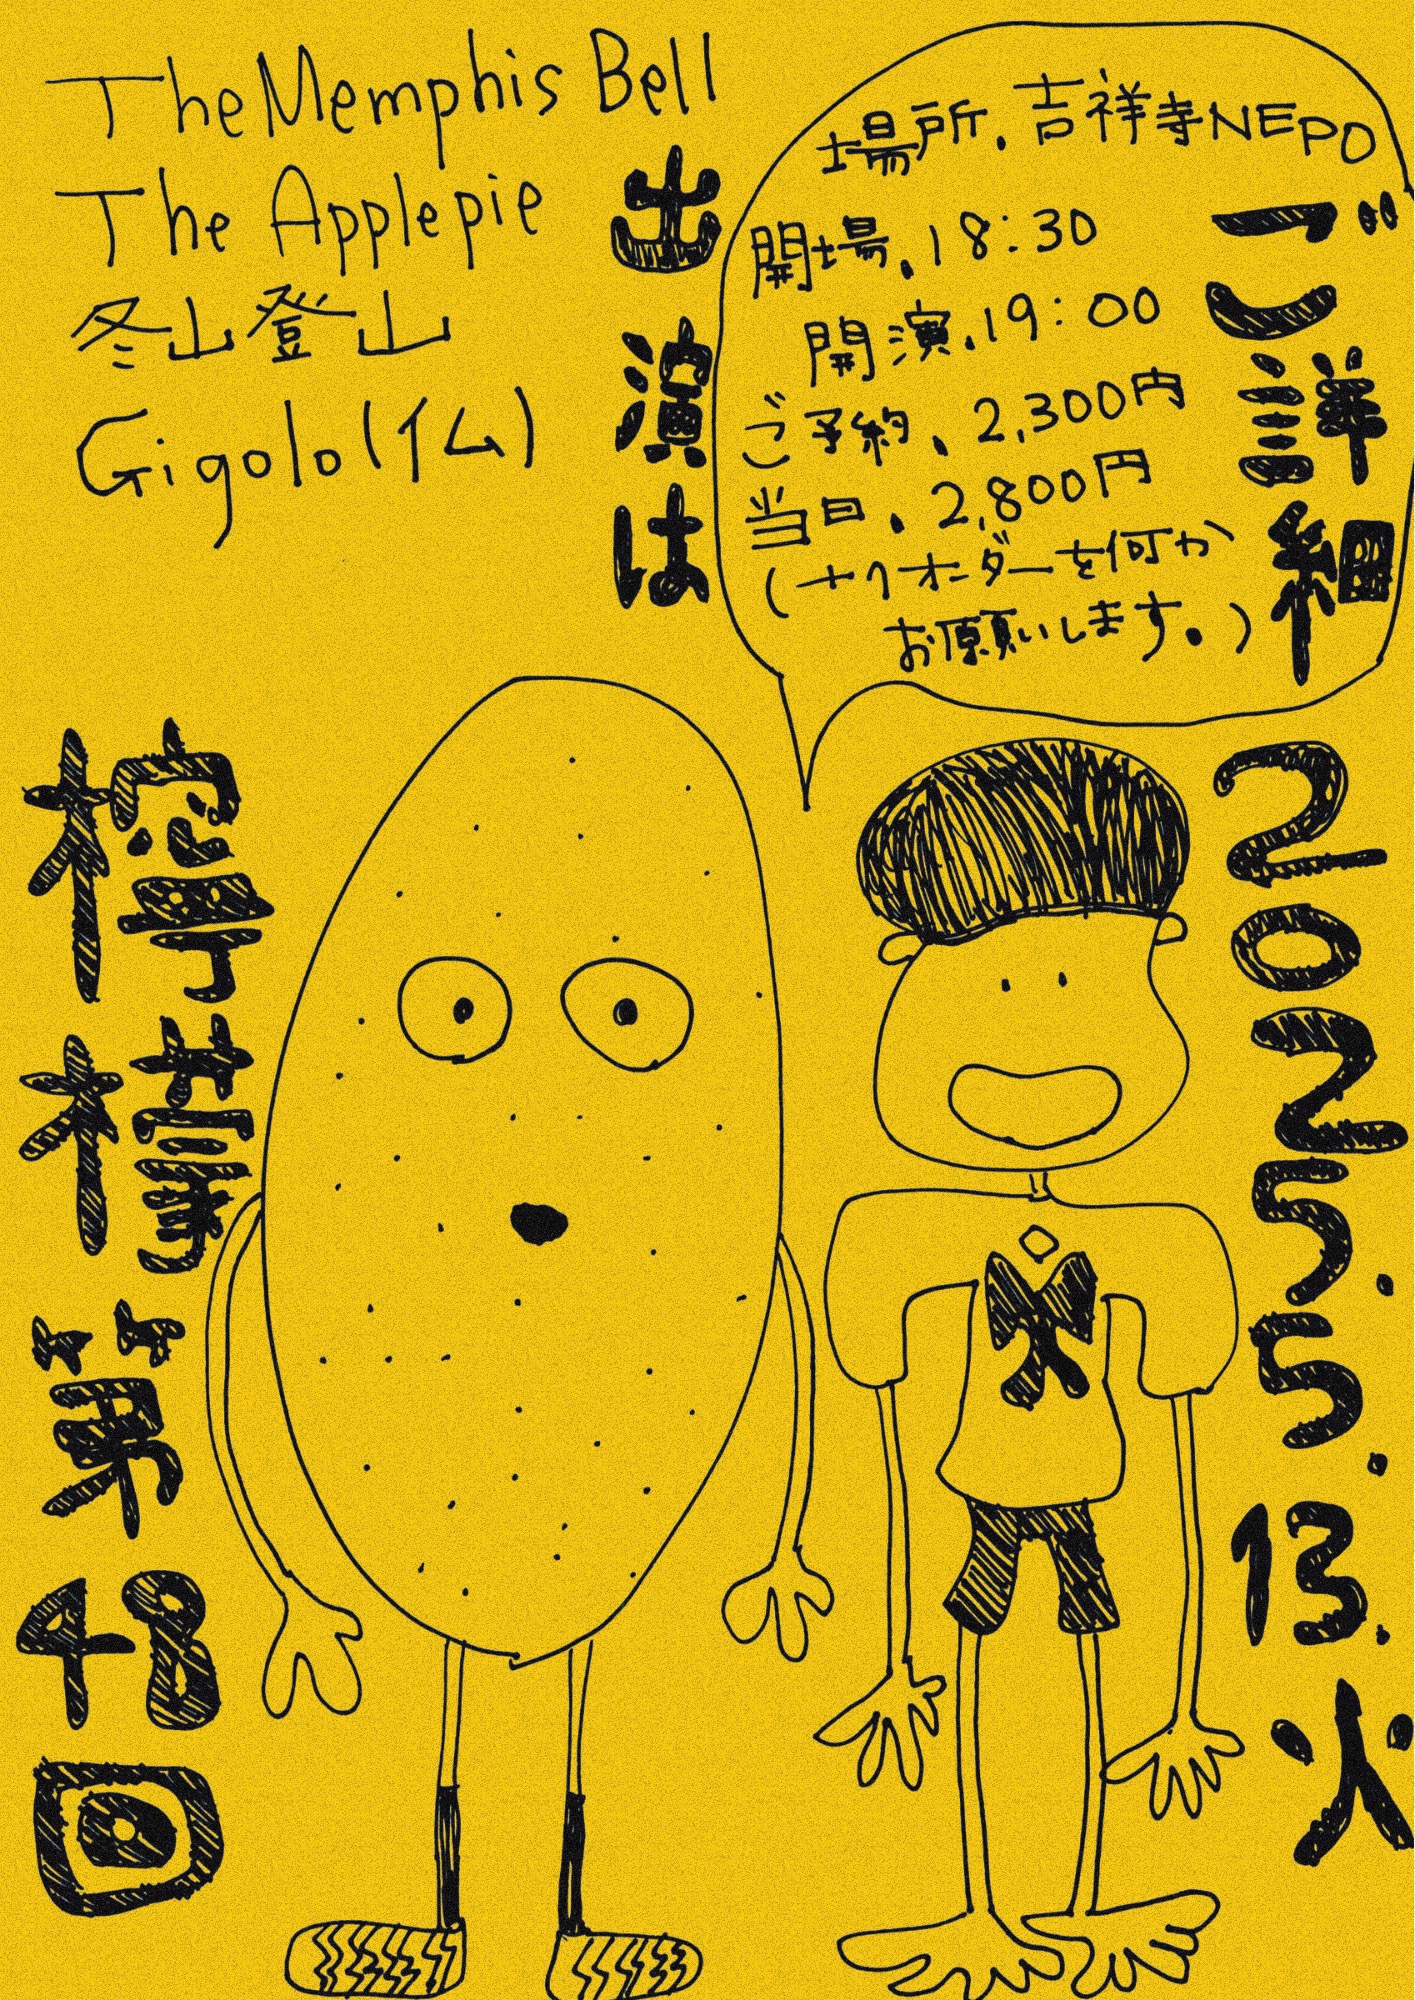 The Memphis Bell
The Applepie
冬山登山
Gigolo(仏)
出演は
場所.吉祥寺NEPO
開場.18:30
開演.19:00
ご予約.2,300円
当日.2,800円
(+1オーダーを何か
お願いします。)
ご詳細
2025.5.13.火
檸檬第48回